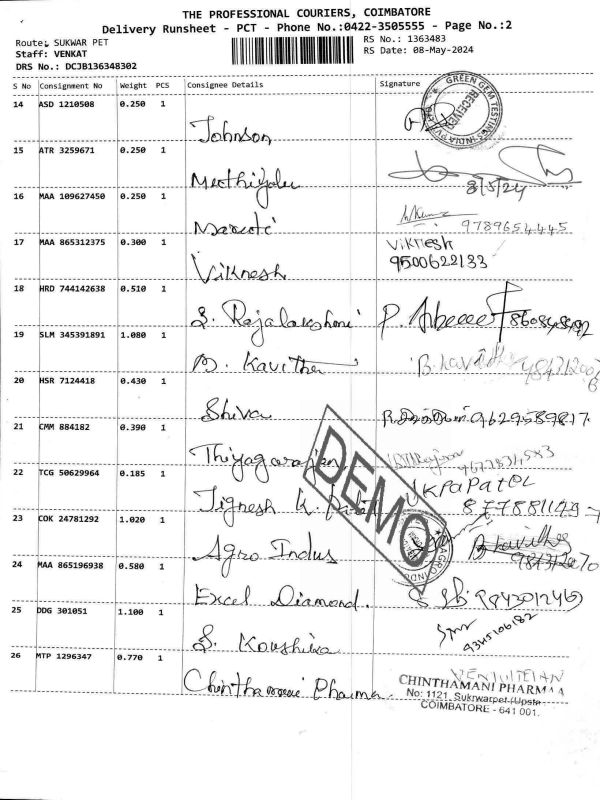 THE PROFESSIONAL COURIERS, COIMBATORE
Delivery Runsheet - PCT - Phone No.:0422-3505555 - Page No.:2
Route: SUKWAR PET
RS No.: 1363483
Staff: VENKAT
RS Date: 08-May-2024
DRS No.: DCJB136348302
S No Consignment No Weight PCS Consignee Details Signature
14 ASD 1210508 0.250 1
GREEN GEM TESTING INDIA PVT
RECEIVER
Johnson
15 ATR 3259671 0.250 1
8/5/24
16 MAA 109627450 0.250 1
9789654445
17 MAA 865312375 0.300 1
Viknesh
9500622133
Viknesh
18 HRD 744142638 0.510 1
S. Rajalakshmi
19 SLM 345391891 1.080 1
B. Kavitha
B. Kavitha
20 HSR 7124418 0.430 1
Shiva
9629589817
21 CMM 884182 0.390 1
Thiyagarajan
22 TCG 50629964 0.185 1
UKPAPATEL
Jignesh K. Patel
DEMO
23 COK 24781292 1.020 1
Agro Indus
AGRO INDUS
B Kavitha
24 MAA 865196938 0.580 1
Excel Diamond.
25 DDG 301051 1.100 1
9345106182
S. Koushika
26 MTP 1296347 0.770 1
Chinthamani Pharma
CHINTHAMANI PHARMAA
No: 1121, Sukrwarpet (Upstr
COIMBATORE - 641 001.